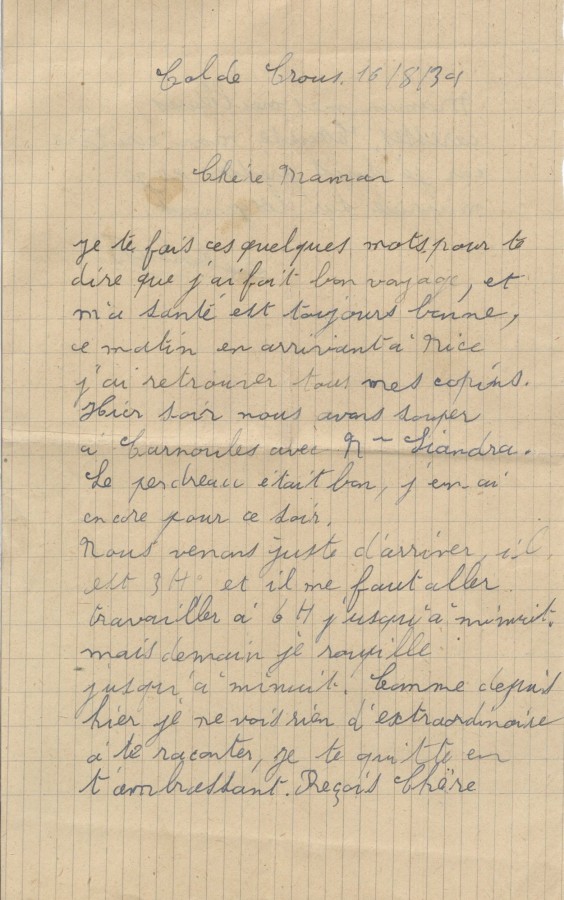 Col de Crous. 16/8/39
Chère Maman
je te fais ces quelques mots pour te
dire que j'ai fait bon voyage, et
m'a santé est toujours bonne,
ce matin en arrivant à Nice
j'ai retrouver tous mes copins.
Hier soir nous avons souper
à Carnoules avec Liandra.
Le perdreau était bon, j'en ai
encore pour ce soir.
Nous venons juste d'arriver, il
est 3H et il me faut aller
travailler à 6H jusqu'à minuit.
mais demain je roupille
jusqu'à minuit. Comme depuis
hier je ne vois rien d'extraordinaire
à te raconter, je te quitte en
t'embrassant. Reçois Chère